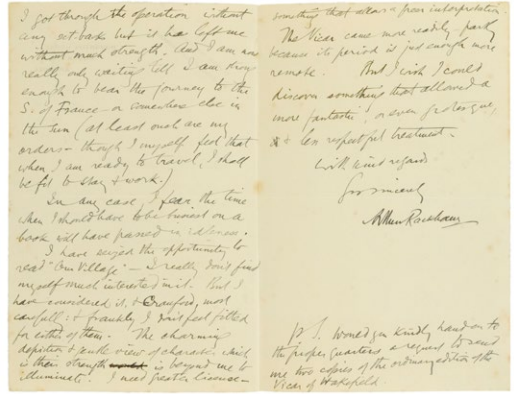 I got through the operation without
any set back but it has left me
without much strength. And I am now
really only waiting till I am strong
enough to bear the journey to the
S. of France or somewhere else in
the sun (at least such are my
orders - though I myself feel that
when I am ready to travel, I shall
be fit to stay & work.)
In any case, I fear the time
when I should have to be busiest on a
book will have passed in idleness.
I have seized the opportunity to
read "Our Village" - I really don't find
myself much interested in it. But I
have considered it, & Cranford, most
carefully & frankly I don't feel fitted
for either of them. The charming
depiction & gentle view of character which
is their strength is beyond me to
illuminate. I need greater license -
something that allows a freer interpretation.
The Vicar came more readily, partly
because its period is just enough more
remote. But I wish I could
discover something that allowed a
more fantastic, or even grotesque,
& less respectful treatment.
With kind regards
Yrs sincerely
Arthur Rackham
P.S. Would you kindly hand on to
the proper quarters a request to send
me two copies of the ordinary edition of the
Vicar of Wakefield.